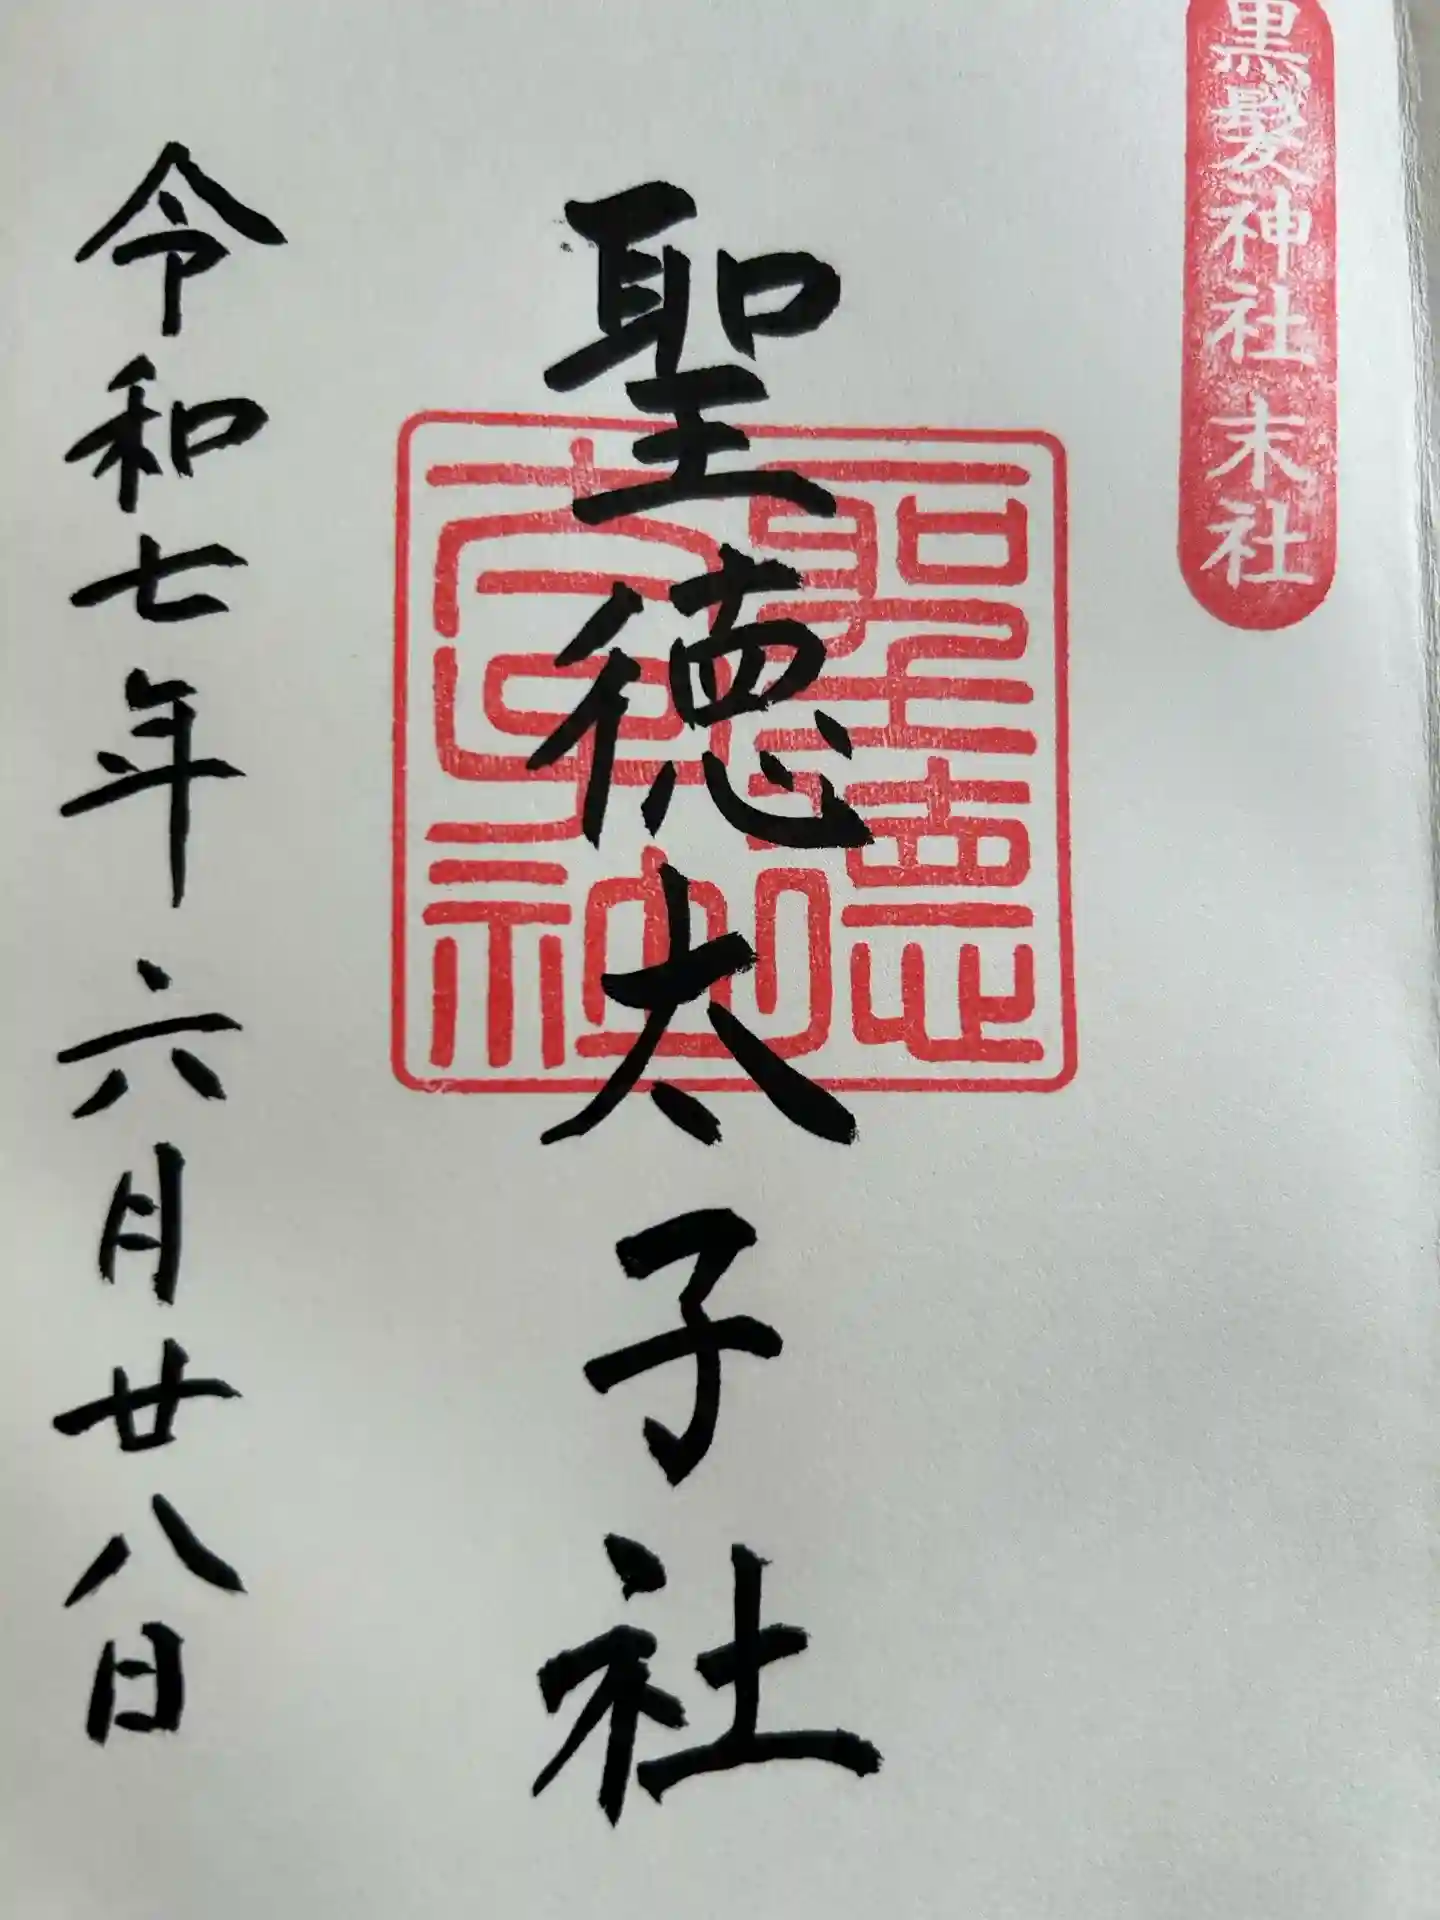 黒髪神社末社
聖徳太子社
聖徳
太子社
令和七年六月廿八日